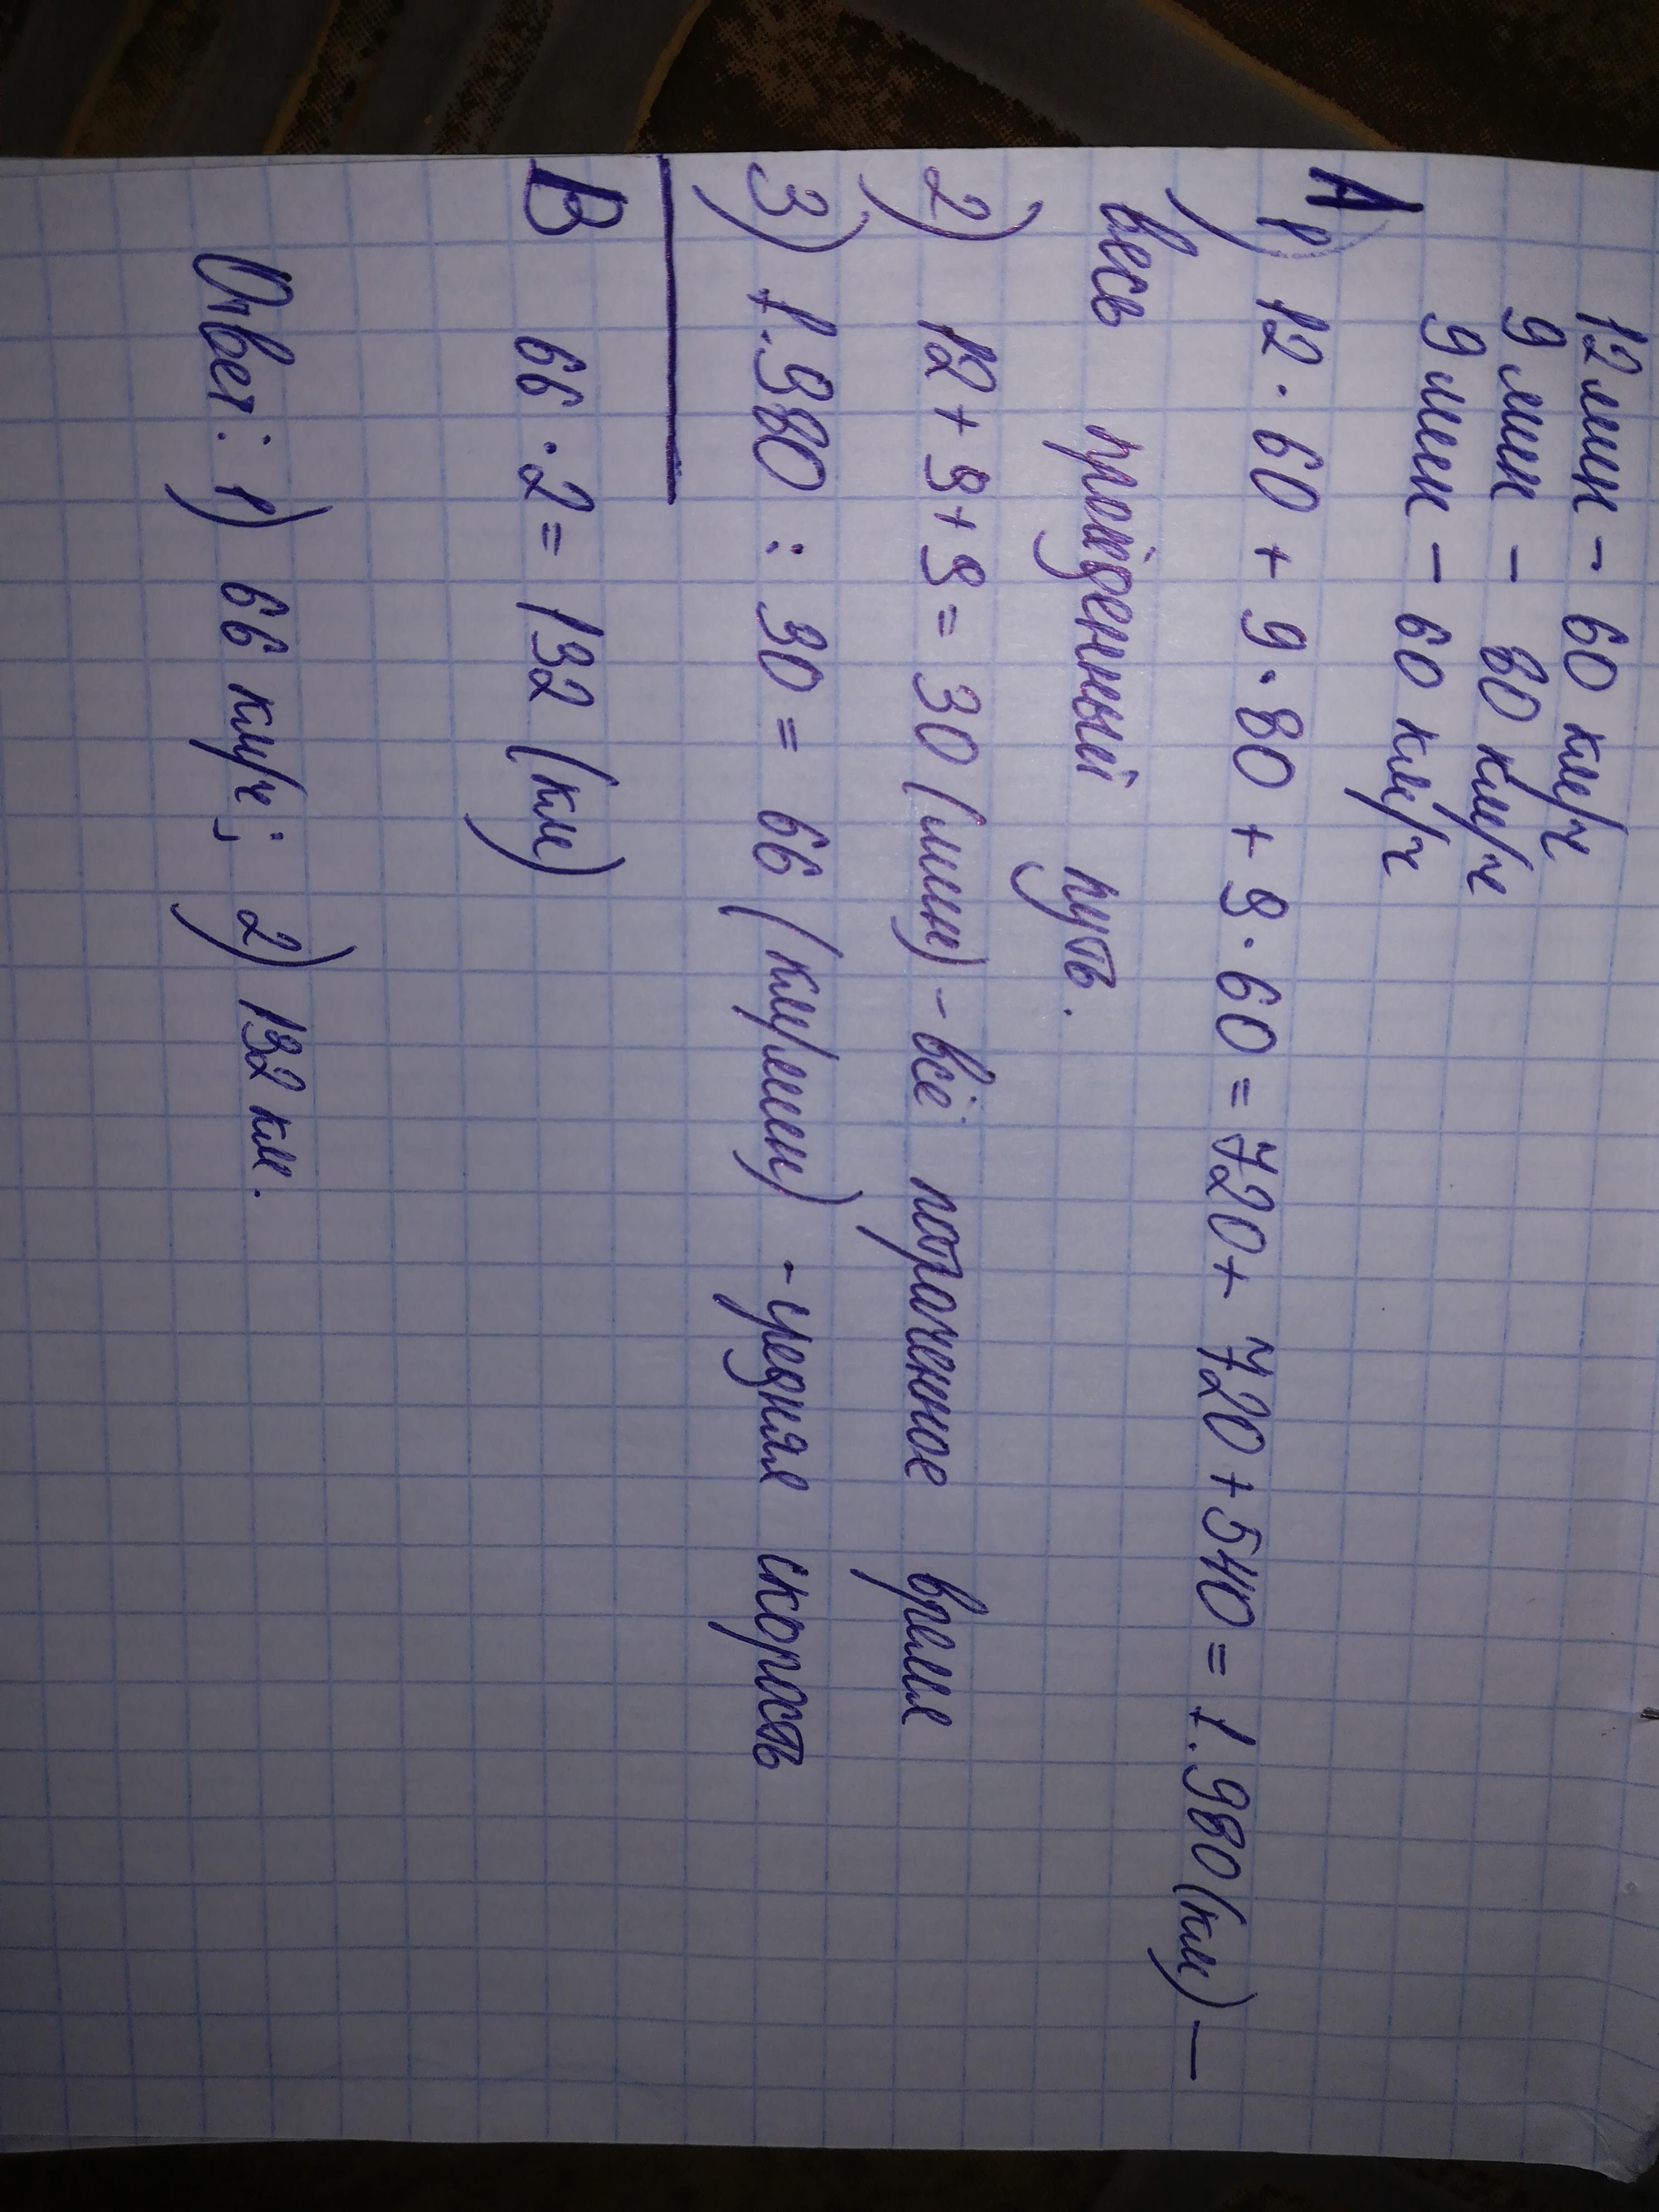 12 мин - 60 км/ч
9 мин - 80 км/ч
9 мин - 60 км/ч
А
1) 12 · 60 + 9 · 80 + 9 · 60 = 720 + 720 + 540 = 1.980 (км) —
весь пройденный путь.
2) 12 + 9 + 9 = 30 (мин) - всё потраченное время
3) 1.980 : 30 = 66 (км/мин) - средняя скорость
В 66 · 2 = 132 (км)
Ответ: 1) 66 км/ч; 2) 132 км.